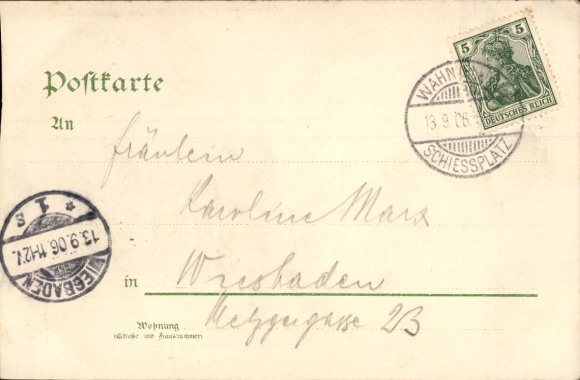 5 5
DEUTSCHES REICH
WAHN
13.9.06.
SCHIESSPLATZ
Postkarte
An
Fräulein
Karoline Marx
1 s
13.9.06. 11-12V.
WIESBADEN
in Wiesbaden
Metzgergasse 23
Wohnung
(Straße und Hausnummer)